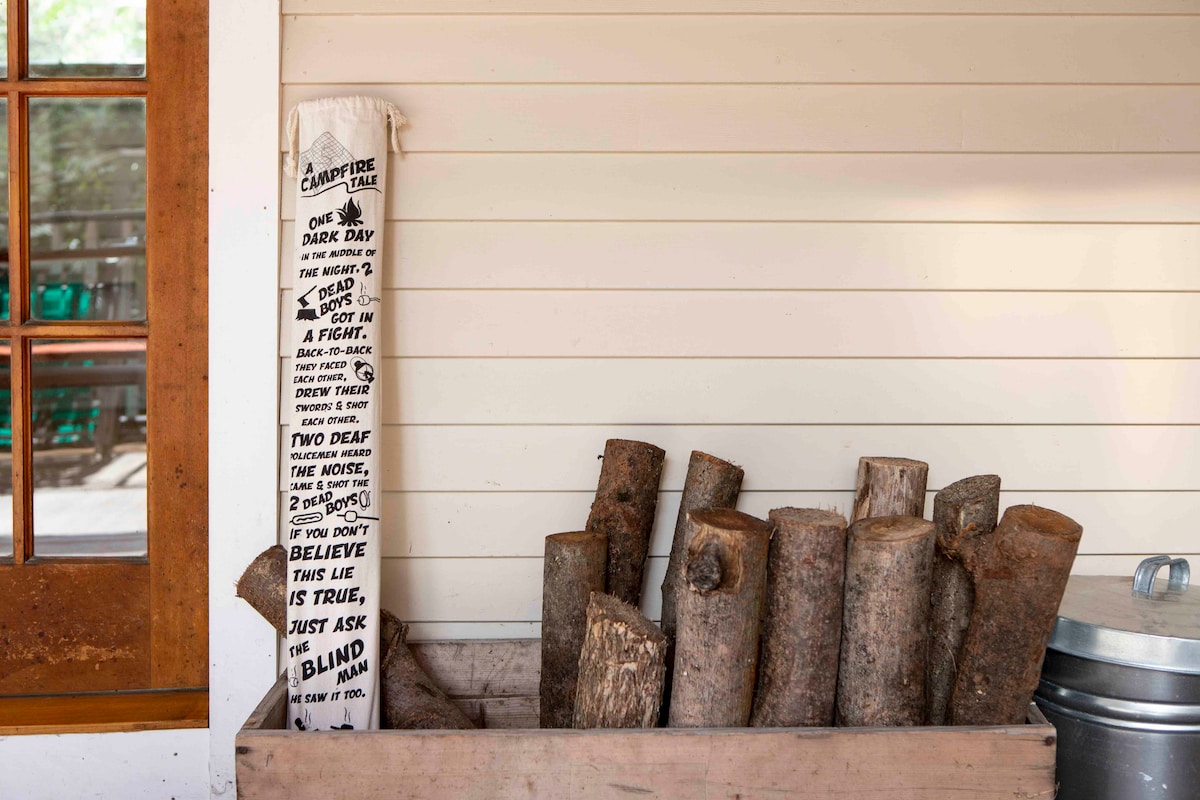 A
CAMPFIRE
TALE
ONE
DARK DAY
IN THE MIDDLE OF
THE NIGHT, 2
DEAD
BOYS
GOT IN
A FIGHT.
BACK-TO-BACK
THEY FACED
EACH OTHER,
DREW THEIR
SWORDS & SHOT
EACH OTHER.
TWO DEAF
POLICEMEN HEARD
THE NOISE,
CAME & SHOT THE
2 DEAD
BOYS
IF YOU DON'T
BELIEVE
THIS LIE
IS TRUE,
JUST ASK
THE
BLIND
MAN
HE SAW IT TOO.